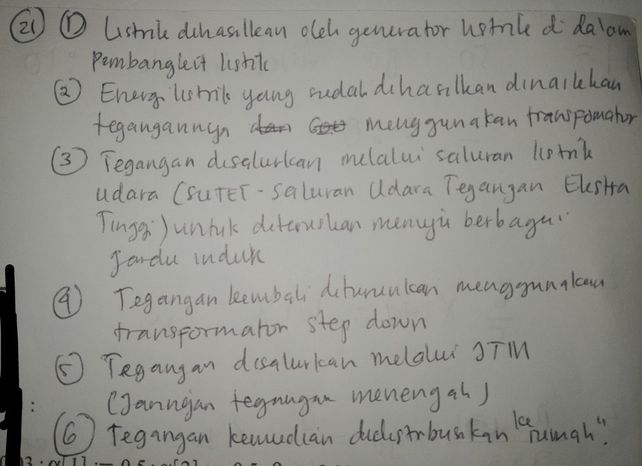 (21) (1) Listrik dihasilkan oleh generator listrik di dalam
Pembangkit listik
(2) Energi listrik yang sudah dihasilkan dinaikkan
tegangannya menggunakan transpomator
(3) Tegangan disalurkan melalui saluran listrik
udara (SUTET - Saluran Udara Tegangan Ekstra
Tinggi) untuk diteruskan menuju berbagai
gardu induk
(4) Tegangan kembali diturunkan menggunakan
transformator step down
(5) Tegangan disalurkan melalui JTM
(Jaringan tegangan menengah)
:
(6) Tegangan kemudian didistribusikan ke rumah".